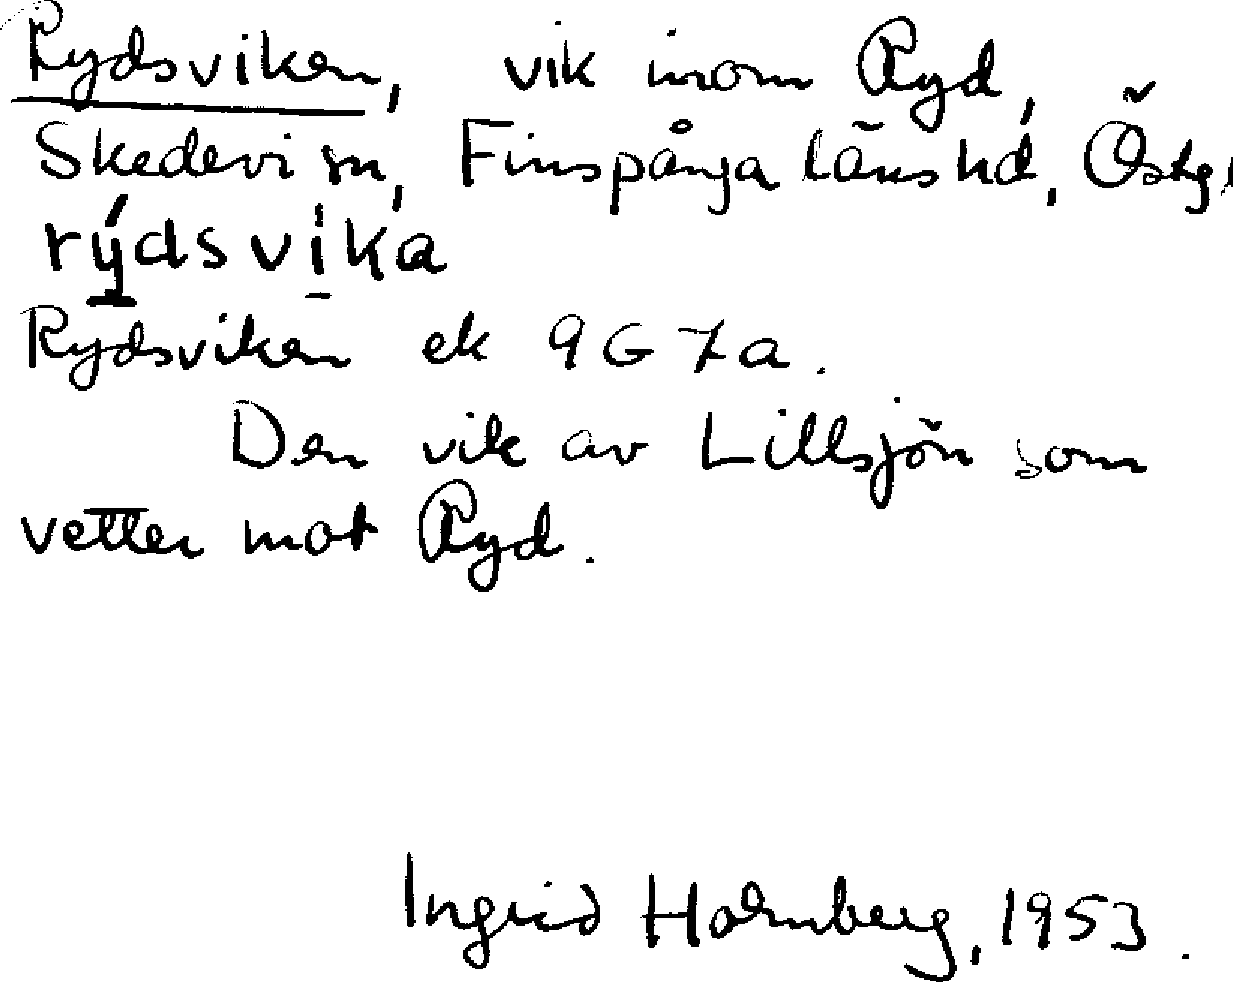 Rydsviken, vik inom Ryd,
Skedevi sn, Finspånga läns hd, Östg.
rýdsvi̱ka
Rydsviken ek 9G7a.
Den vik av Lillsjön som
vetter mot Ryd.
Ingrid Holmberg, 1953.